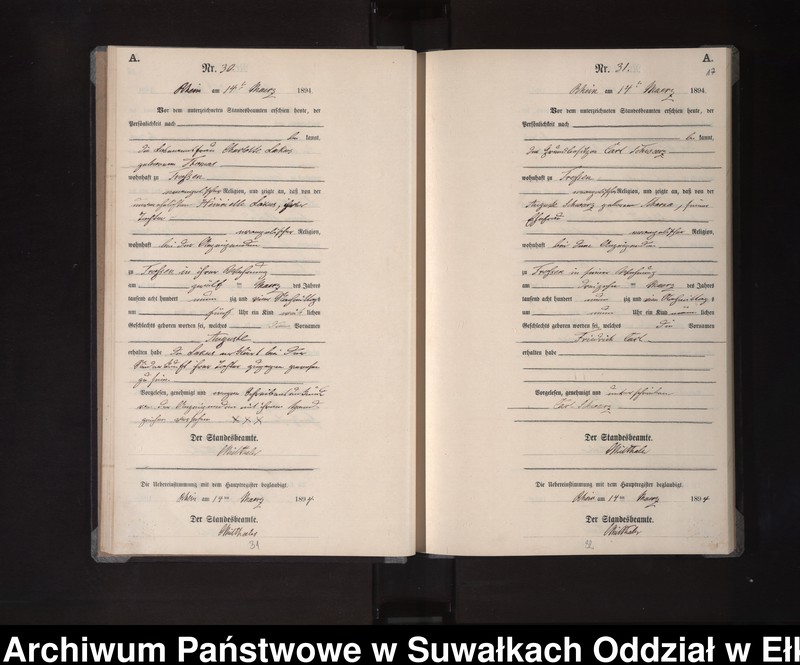 A.
Nr. 30.
Rhein am 14ten Maerz 1894.
Vor dem unterzeichneten Standesbeamten erschien heute, der
Persönlichkeit nach
be kannt,
die Charlotte Lakus
geborene Thomas
wohnhaft zu Troßen
evangelischer Religion, und zeigte an, daß von der
unverehelichten Henriette Lakus, ihrer
Tochter
evangelischer Religion,
wohnhaft bei der Anzeigenden
zu Troßen in ihrer Wohnung
am zwölf ten Maerz des Jahres
tausend acht hundert neun zig und vier Nachmittags
um fünf Uhr ein Kind weib lichen
Geschlechts geboren worden sei, welches Vornamen
Auguste
erhalten habe. Die Lakus erklärt bei der
Niederkunft ihrer Tochter zugegen gewesen
zu sein.
Vorgelesen, genehmigt und wegen Schreibensunkunde
von der Anzeigenden mit ihrem Hand-
zeichen versehen XXX
Der Standesbeamte.
Die Uebereinstimmung mit dem Hauptregister beglaubigt.
Rhein am 14ten Maerz 1894
Der Standesbeamte.
31
A.
17
Nr. 31.
Rhein am 14ten Maerz 1894.
Vor dem unterzeichneten Standesbeamten erschien heute, der
Persönlichkeit nach
be kannt,
der Grundbesitzer Carl
wohnhaft zu Troßen
evangelischer Religion, und zeigte an, daß von der
Auguste geborene seiner
Ehefrau
evangelischer Religion,
wohnhaft bei dem Anzeigenden
zu Troßen in seiner Wohnung
am dreizehn ten Maerz des Jahres
tausend acht hundert neun zig und vier Vormittags
um neun Uhr ein Kind männ lichen
Geschlechts geboren worden sei, welches die Vornamen
Friedrich Carl
erhalten habe
Vorgelesen, genehmigt und unterschrieben
Carl
Der Standesbeamte.
Die Uebereinstimmung mit dem Hauptregister beglaubigt.
Rhein am 14ten Maerz 1894
Der Standesbeamte.
Archiwum Państwowe w Suwałkach Oddział w Eł